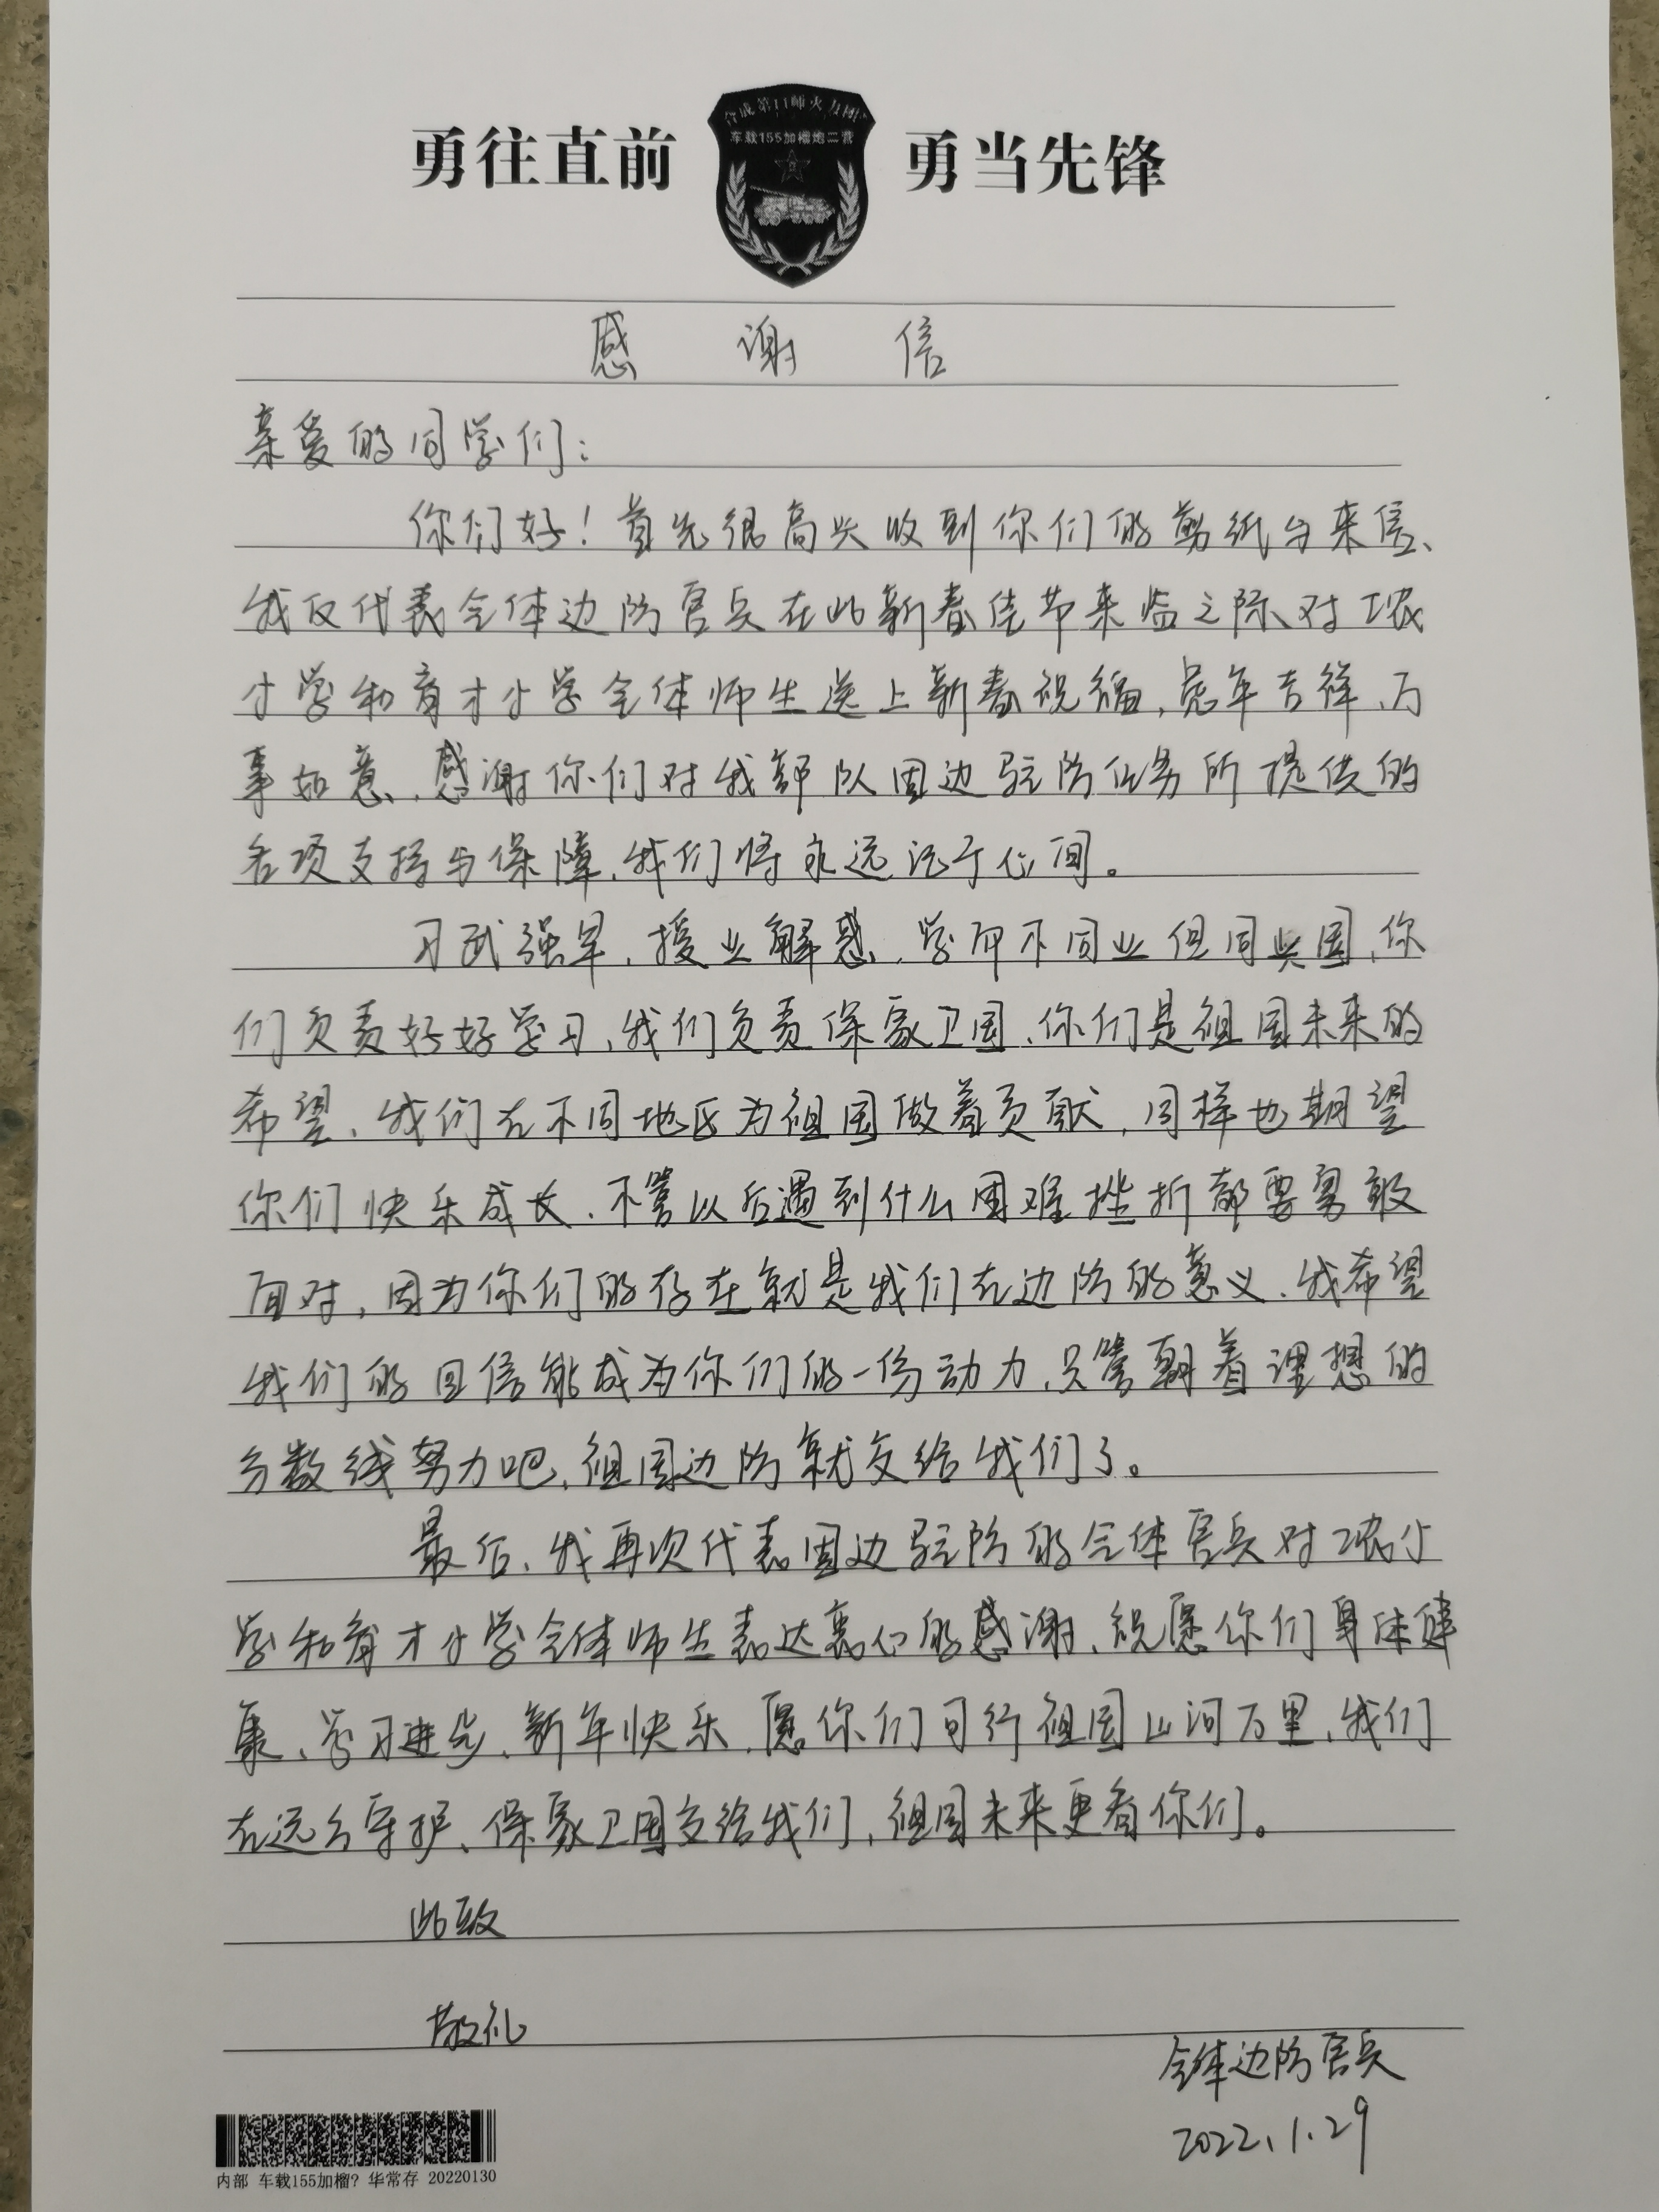 合成第11师火力团
车载155加榴炮二营
勇往直前 勇当先锋
感谢信
亲爱的同学们：
你们好！首先很高兴收到你们的剪纸与来信、
我仅代表全体边防官兵在此新春佳节来临之际、对工农
小学和育才小学全体师生送上新春祝福，虎年吉祥、万
事如意、感谢你们对我部队固边驻防任务所提供的
各项支持与保障，我们将永远记于心间。
习武强军，授业解惑，学军不同业但同兴国，你
们负责好好学习、我们负责保家卫国、你们是祖国未来的
希望、我们在不同地区为祖国做着贡献，同样也期望
你们快乐成长、不管以后遇到什么困难挫折都要勇敢
面对，因为你们的存在就是我们在边防的意义、我希望
我们的回信能成为你们的一份动力，只管朝着理想的
分数线努力吧，祖国边防就交给我们了。
最后、我再次代表固边驻防的全体官兵对工农小
学和育才小学全体师生表达衷心的感谢、祝愿你们身体健
康、学习进步、新年快乐，愿你们可行祖国山河万里、我们
在远方守护、保家卫国交给我们，祖国未来更看你们。
此致
敬礼
全体边防官兵
2022.1.29
内部 车载155加榴? 华常存 20220130